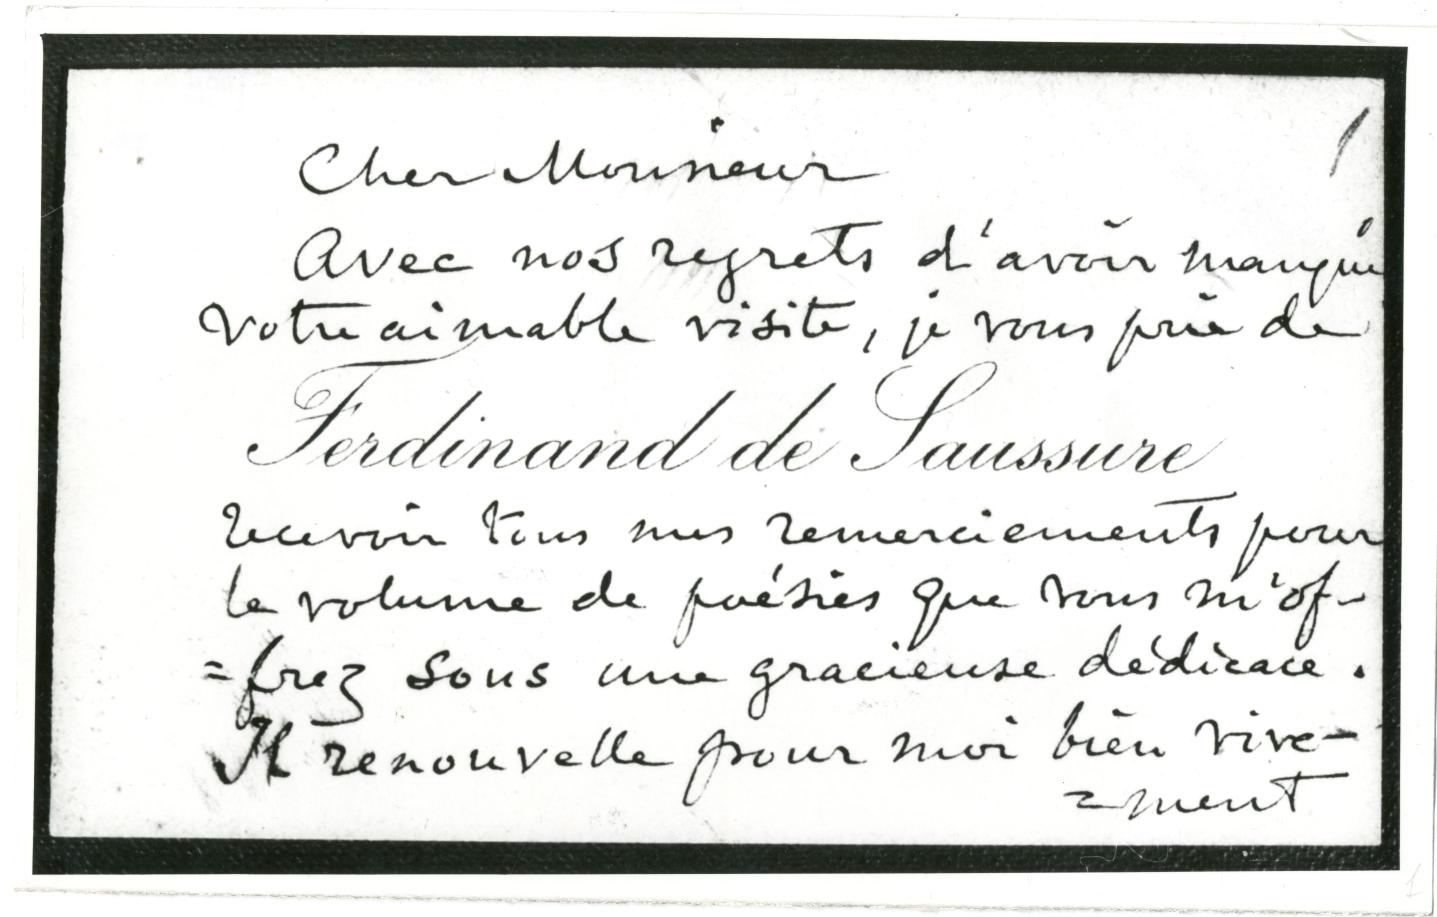 Cher Monsieur
Avec nos regrets d'avoir manqué
votre aimable visite, je vous prie de
Ferdinand de Saussure
recevoir tous mes remerciements pour
le volume de poésies que vous m'of-
=frez sous une gracieuse dédicace.
Il renouvelle pour moi bien vive-
=ment